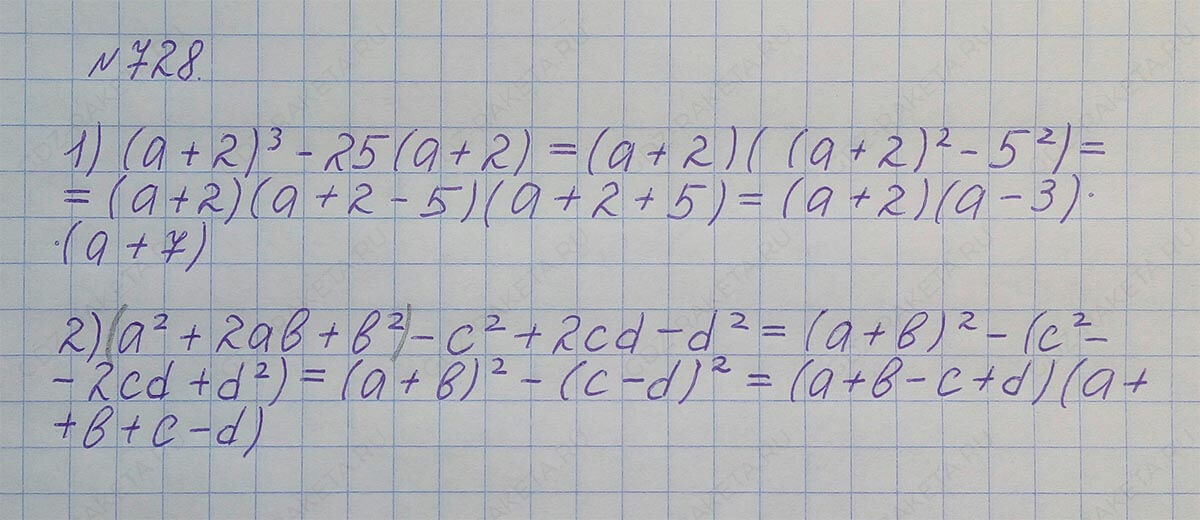 №728.
1) (a + 2)³ - 25(a + 2) = (a + 2)( (a + 2)² - 5²) =
= (a + 2)(a + 2 - 5)(a + 2 + 5) = (a + 2)(a - 3)·
·(a + 7)
2) (a² + 2ab + b²) - c² + 2cd - d² = (a + b)² - (c² -
- 2cd + d²) = (a + b)² - (c - d)² = (a + b - c + d)(a +
+ b + c - d)